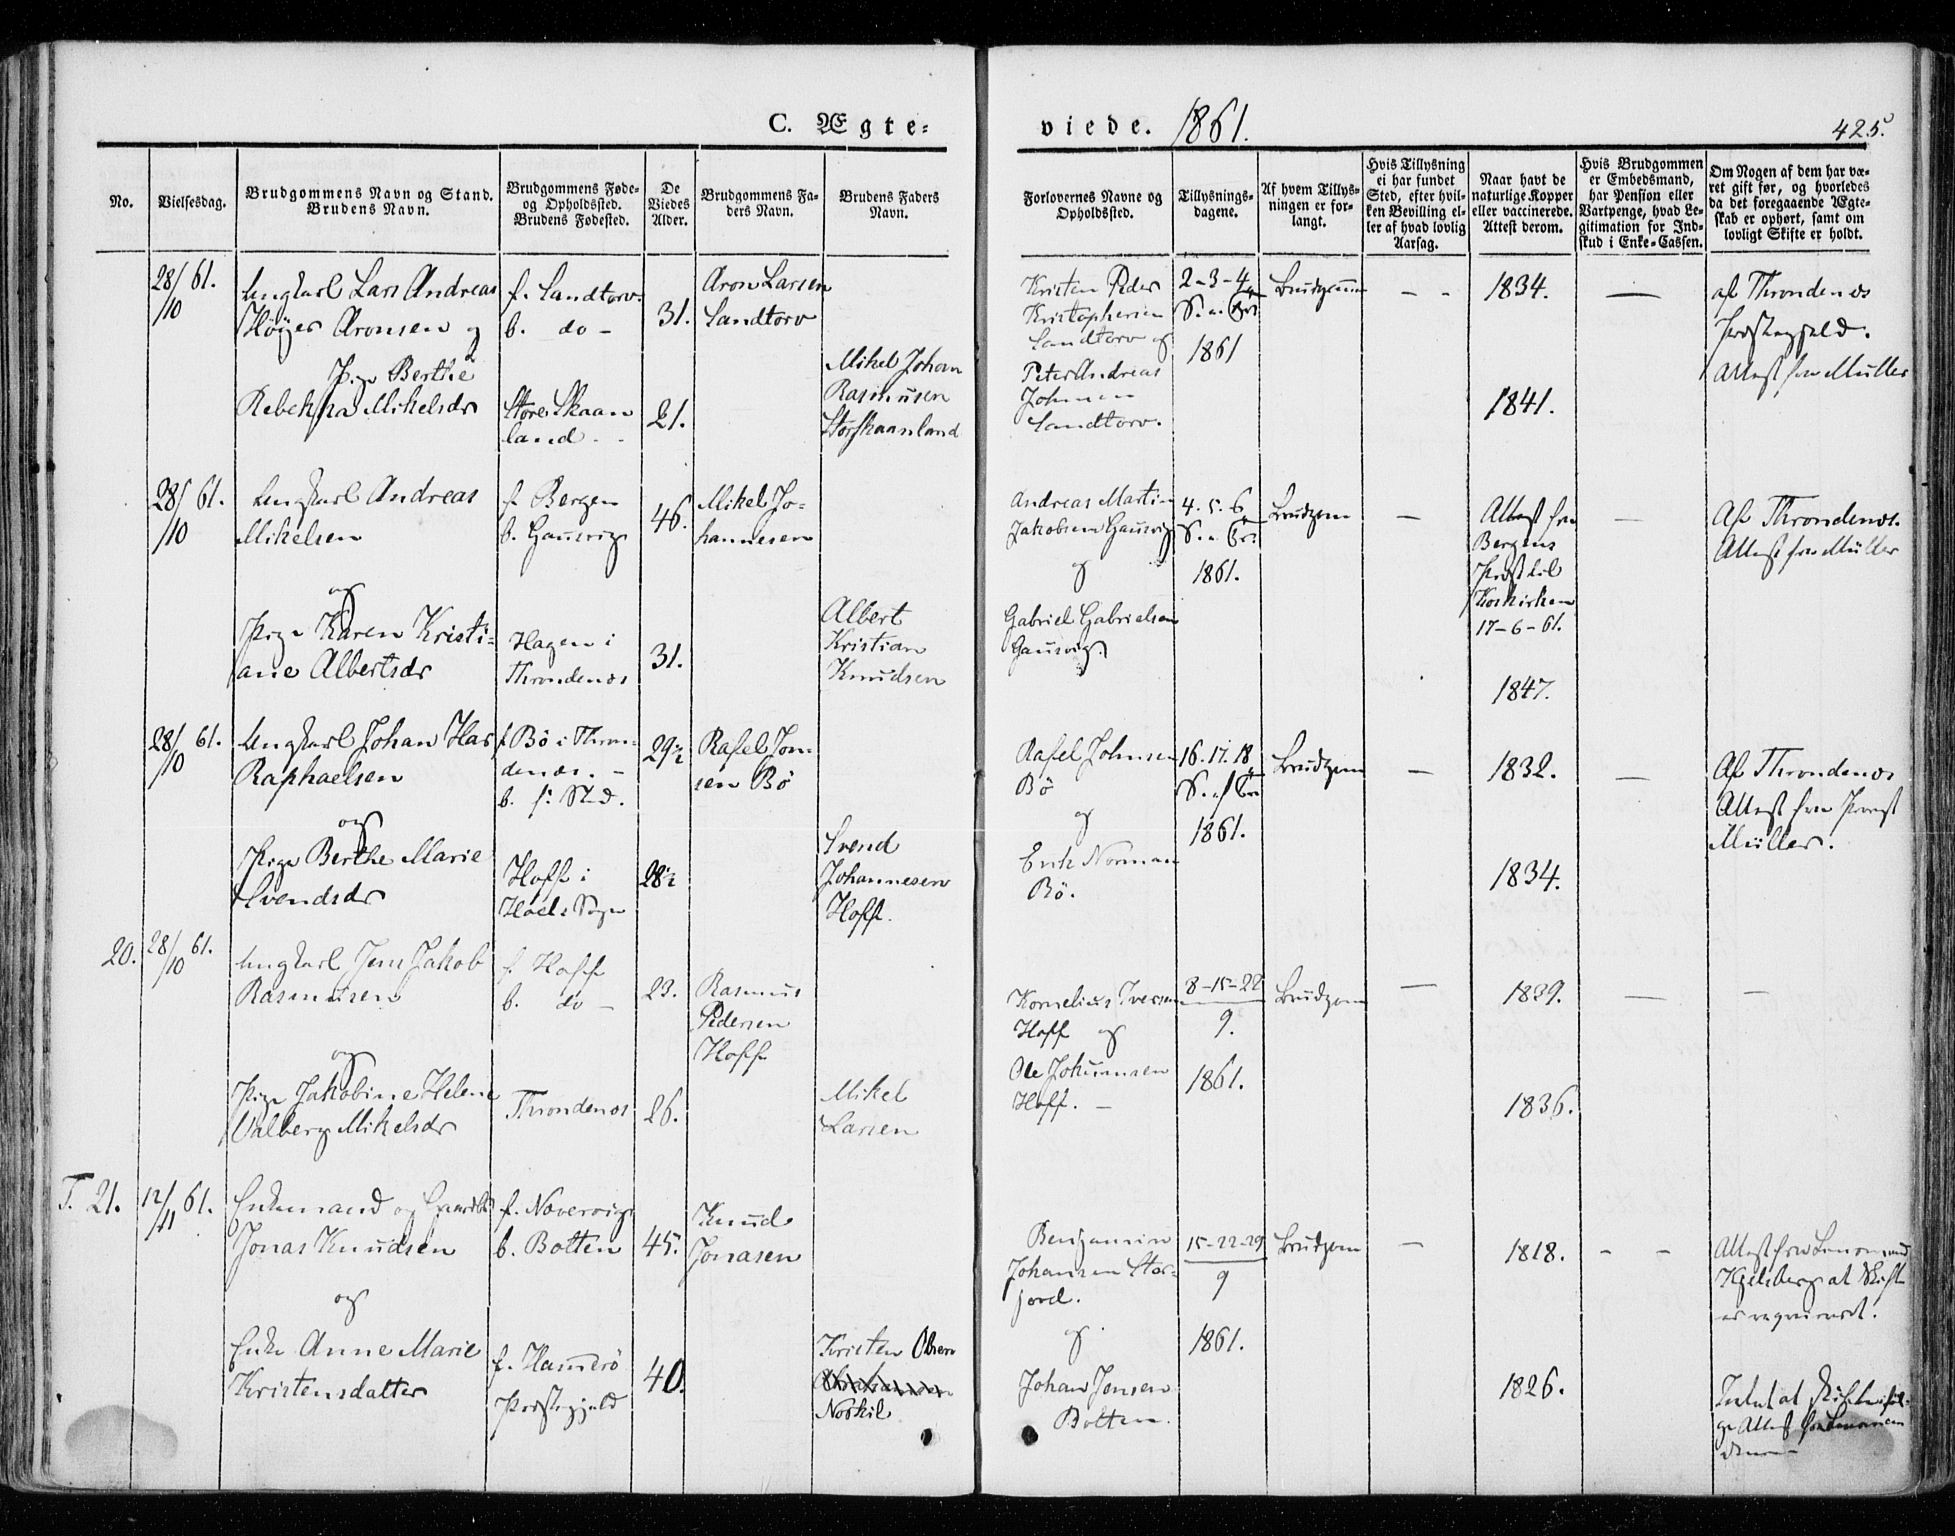 C. Ægte-
viede. 1861.
425.
No.
Vielsesdag.
Brudgommens Navn og Stand.
Brudens Navn.
Brudgommens Føde-
og Opholdssted.
Brudens Fødested.
De
Viedes
Alder.
Brudgommens Fa-
ders Navn.
Brudens Faders
Navn.
Forlovernes Navne og
Opholdssted.
Tillysnings-
dagene.
Af hvem Tillys-
ningen er for-
langt.
Hvis Tillysning
ei har fundet
Sted, efter hvil-
ken Bevilling el-
ler af hvad lovlig
Aarsag.
Naar havt de
naturlige Kopper
eller vaccinerede.
Attest derom.
Hvis Brudgommen
er Embedsmand,
har Pension eller
Vartpenge, hvad Le-
gitimation for Ind-
skud i Enke-Cassen.
Om Nogen af dem har væ-
ret gift før, og hvorledes
da det foregaaende Ægte-
skab er ophørt, samt om
lovligt Skifte er holdt.
28/10 61.
Ungkarl Lars Andreas
Høyer Aronsen og
Pige Berthe
Rebekka Mikelsdr
f. Sandtorv.
b. do -
Store Skaan
land
31.
21.
Aron Larsen
Sandtorv
Mikel Johan
Rasmusen
Storskaanland
Kristen Peder
Kristophersen
Sandtorv og
Peter Andreas
Johnsen
Sandtorv.
2-3-4
S. e. Tr:
1861
Brudgommen
- -
1834.
1841.
—
af Throndenæs
Præstegjeld.
Attest fra Müller
28/10 61.
Ungkarl Andreas
Mikelsen
og
Pige Karen Kristi-
ane Albertsdr
f. Bergen
b. Gausvig
Hagen i
Throndenæs
46.
31.
Mikel Jo-
hannesen
Albert
Kristian
Knudsen
Andreas Martin
Jakobsen Gausvig
og
Gabriel Gabrielsen
Gausvig.
4. 5. 6
S. e. Tr:
1861.
Brudgom
—
Attest fra
Bergens
Præst til
Korskirken
17-6-61.
1847.
—
Af Throndenæs.
Attest fra Müller
28/10 61.
Ungkarl Johan Has
Raphaelsen
og
Pige Berthe Marie
Svendsdr
f. Bö i Thron-
denæs. -
b. s: Sted.
Hoff i
Hoels Sogn
29½
28½
Rafel Jon-
sen Bö
Svend
Johannesen
Hoff.
Rafel Johnsen
Bö
og
Erik Norman
Bö.
16. 17. 18
S. e. Tr:
1861.
Brudgom
—
1832.
1834.
—
Af Throndenæs
Attest fra Provst
Müller.
20. 28/10 61.
Ungkarl Jens Jakob
Rasmusen
og
Pige Jakobine Helene
Valberg Mikelsdr
f. Hoff
b. do -
Throndenæs
23.
26.
Rasmus
Pedersen
Hoff
Mikel
Larsen
Kornelius Iversen
Hoff og
Ole Johannesen
Hoff. -
8-15-22
9.
1861.
Brudgom
—
1839.
1836.
—
—
T. 21. 12/11 61.
Enkemand og
Jonas Knudsen
og
Enke Anne Marie
Kristensdatter
f. Nævervig
b. Botten
f. Hamerö
Præstegjeld
45.
40.
Knud
Jonasen
Kristen Olsen
Norkil
Benjamin
Johansen Stor-
jord.
og
Johan Jensen
Botten.
15-22-29
9
1861.
Brudgom
—
1818.
1826.
- -
Attest fra Lensmand
at Skifte
er reqvireret.
Intet at Skifte iföl-
ge Attest fra Lensman